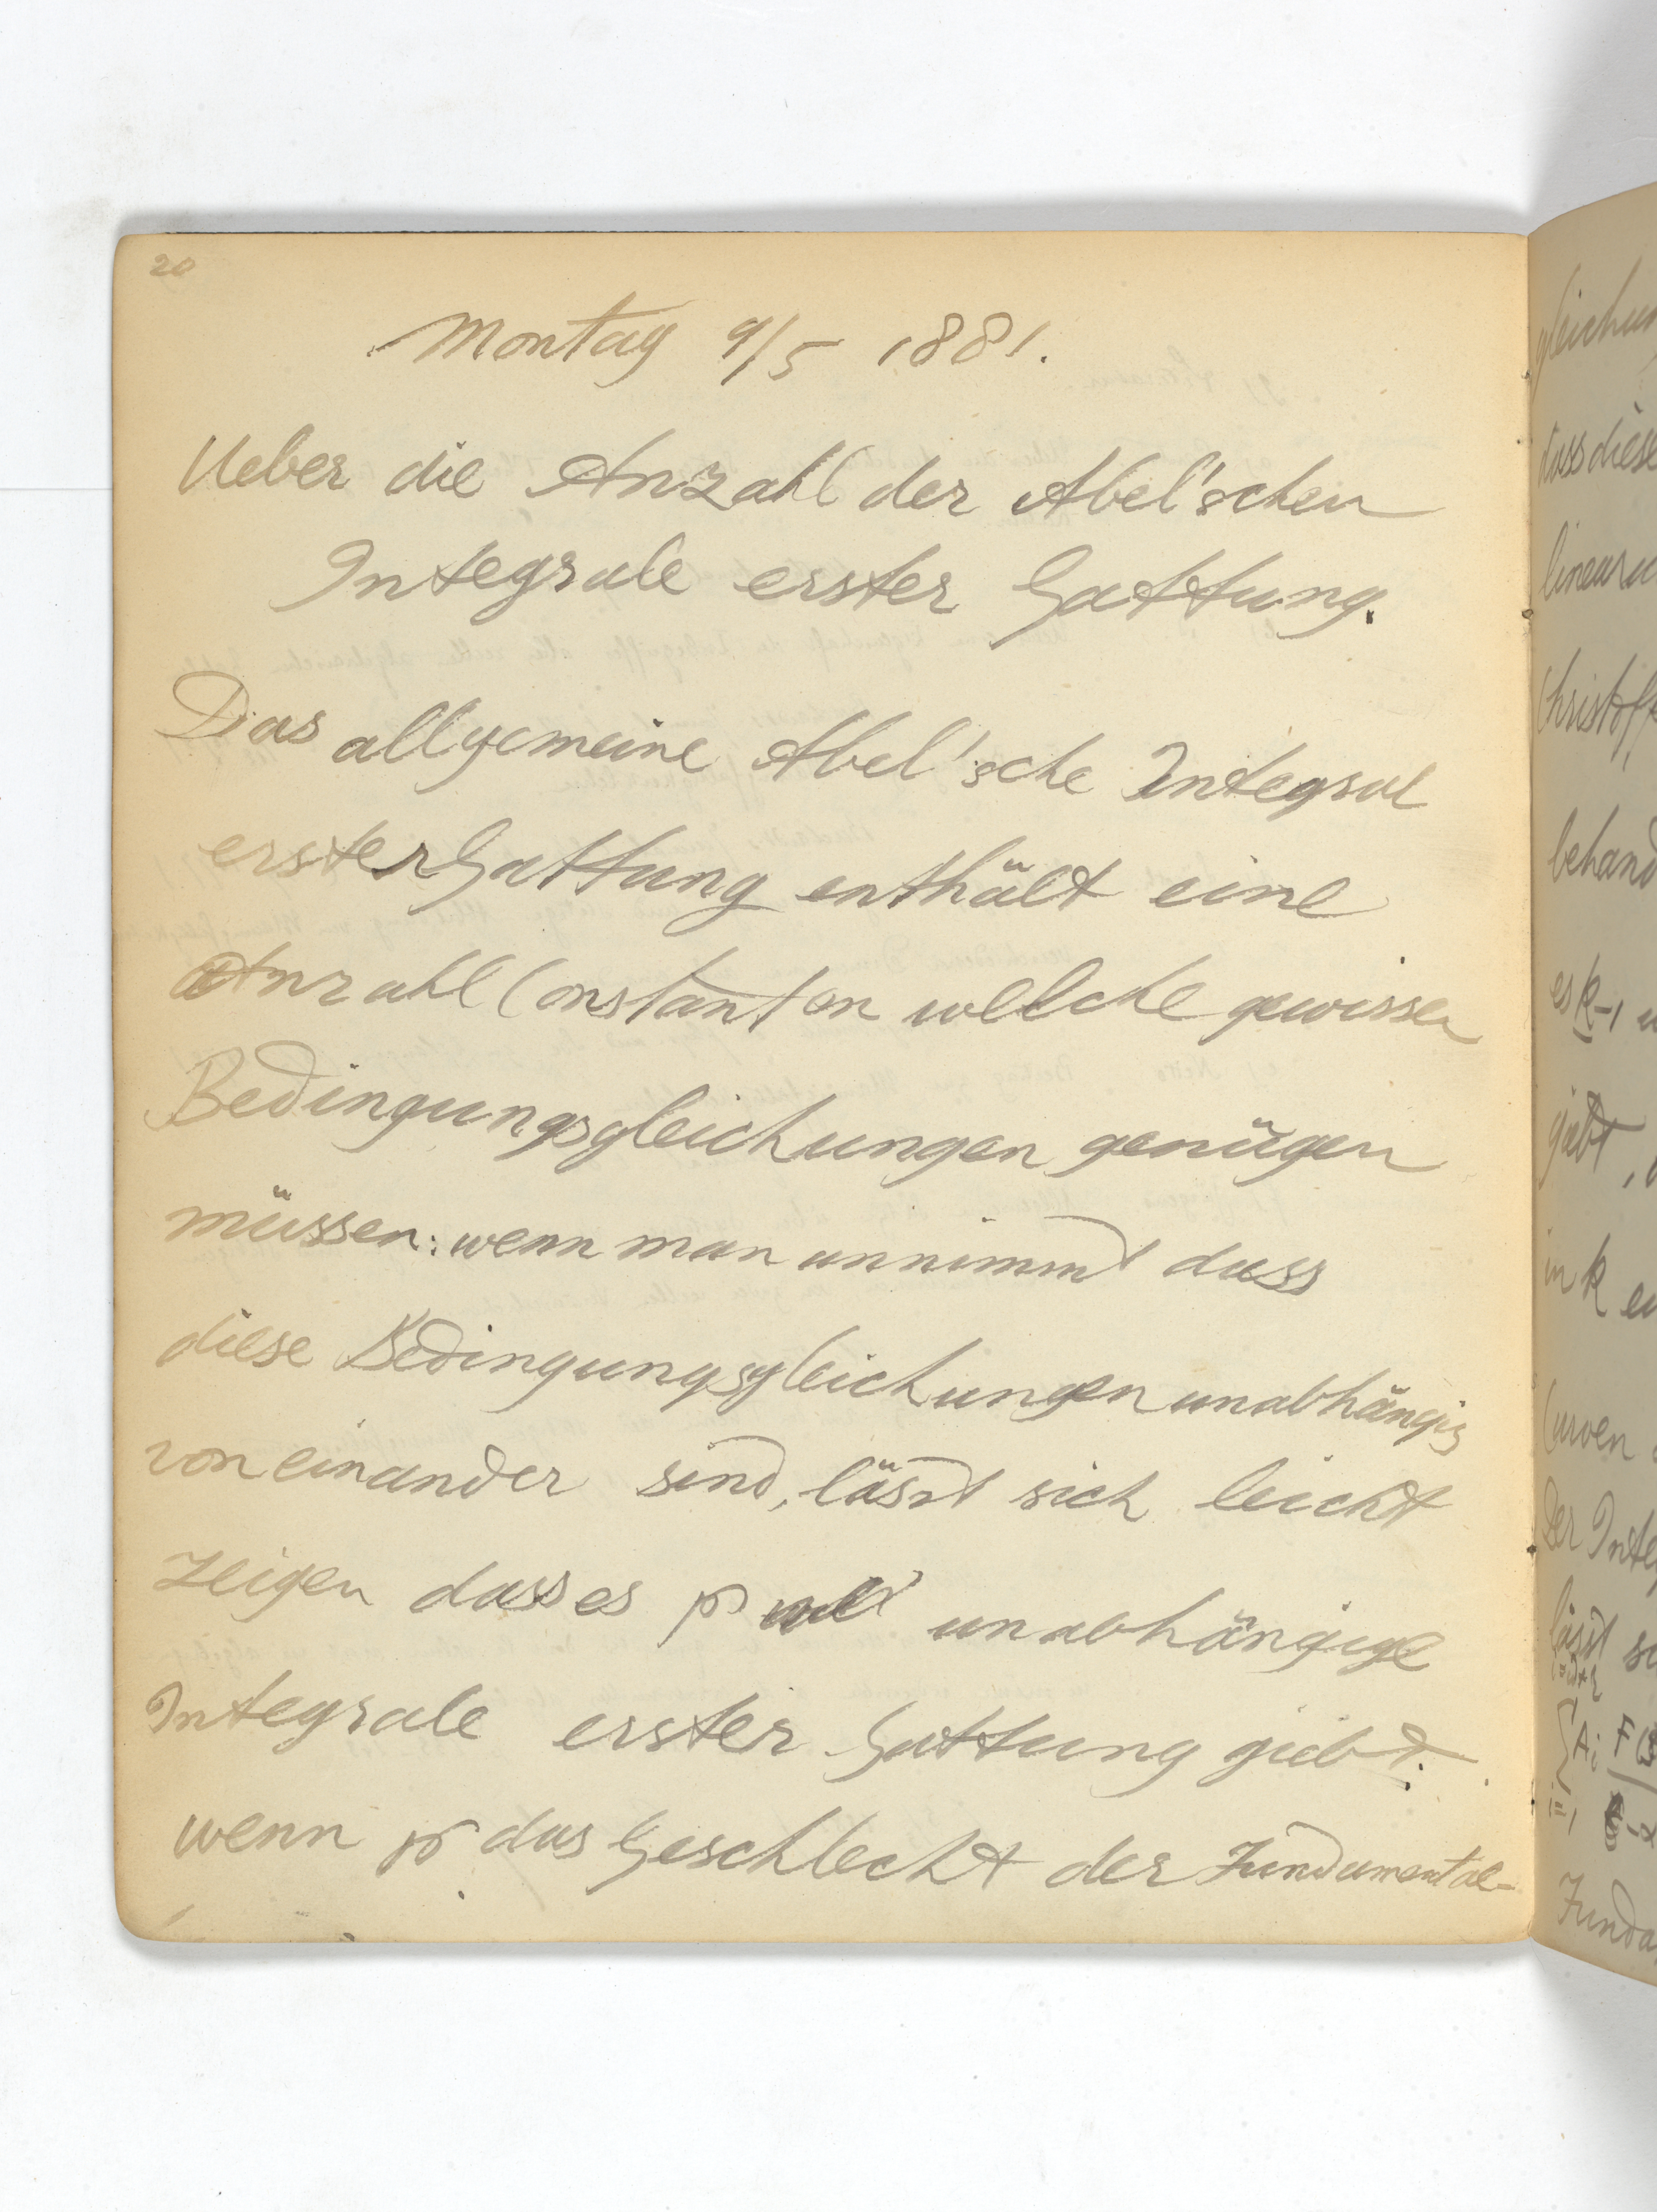 20
Montag 9/5 1881.
Ueber die Anzahl der Abel'schen
Integrale erster Gattung.
Das allgemeine Abel'sche Integral
erster Gattung enthält eine
Anzahl Constanten welche gewissen
Bedingungsgleichungen genügen
müssen: wenn man annimmt dass
diese Bedingungsgleichungen unabhängig
von einander sind, lässt sich leicht
zeigen dass es p unabhängige
Integrale erster Gattung giebt.
wenn p das Geschlecht der Fundamental-
dass diese
behand
es k-1
giebt,
in k
Curven
Der Inte
lässt